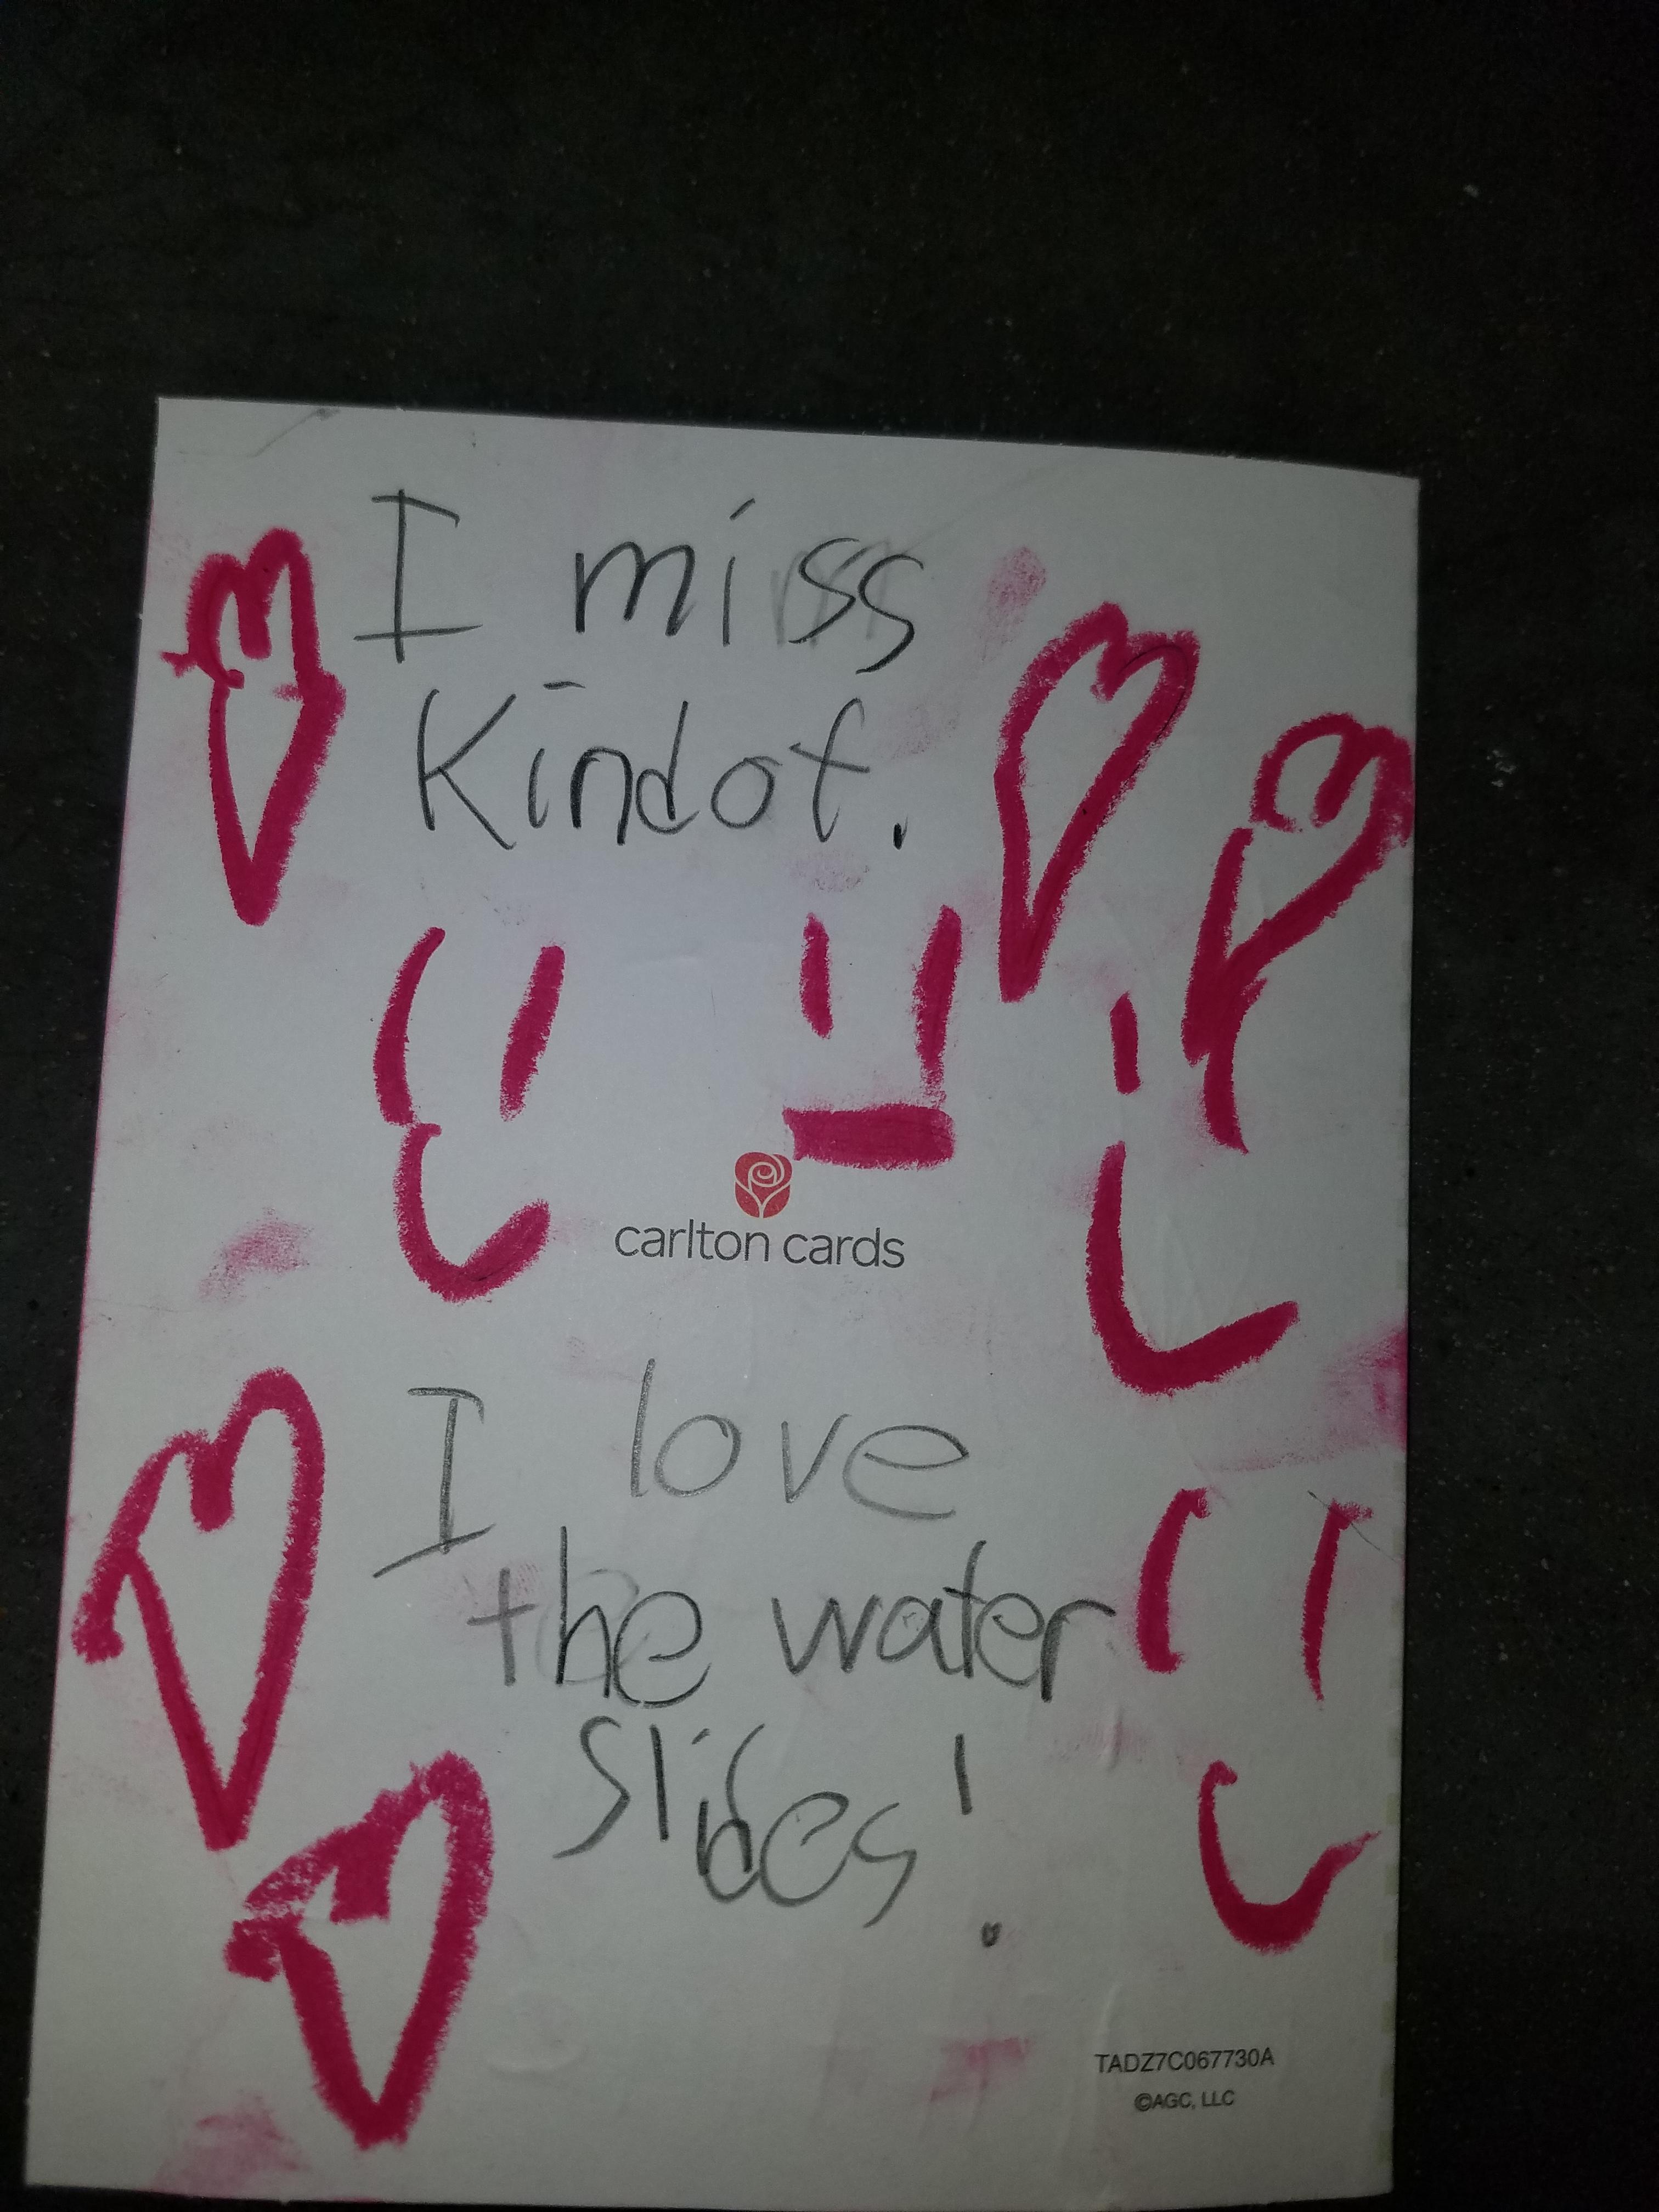 I miss
Kindot.
carlton cards
I love
the water
slides!
TADZ7C067730A
©AGC, LLC